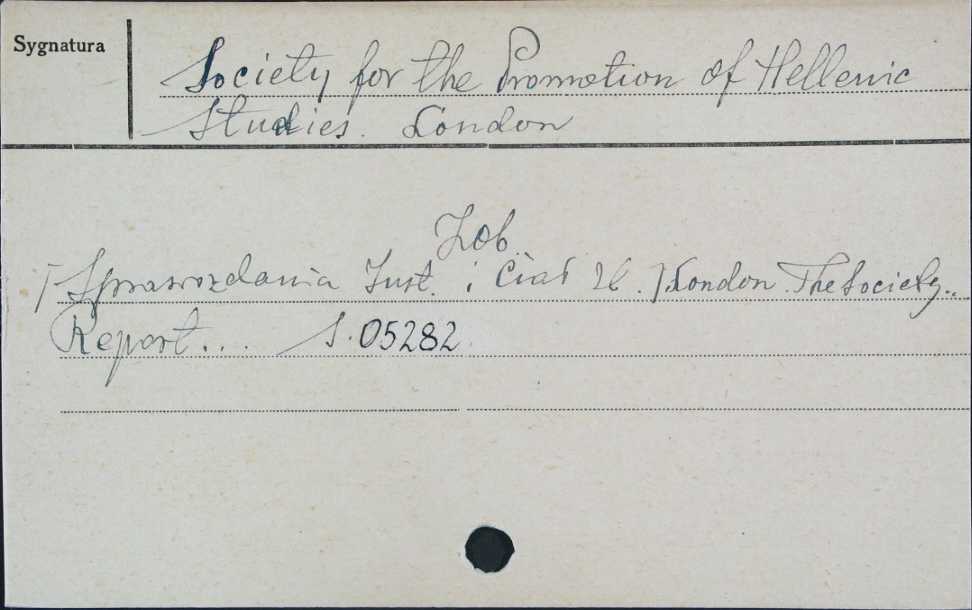 Sygnatura
Society for the Promotion of Hellenic
Studies. London
Zob.
[Sprawozdania Inst. i Ciał Zb.] London The Society..
Report... S. 05282